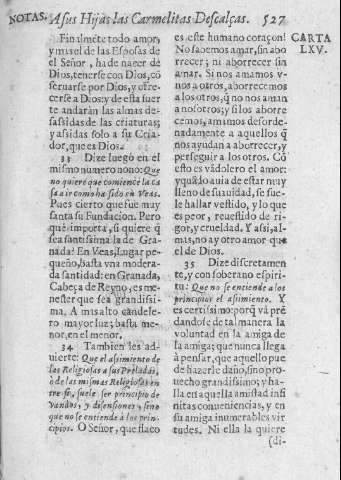 NOTAS. A sus Hijas las Carmelitas Descalças. 527
Finalmẽte todo amor,
y mas el de las Esposas de
el Señor, ha de nacer de
Dios, tenerse con Dios, cõ
seruarse por Dios, y ofre-
cerse a Dios: y de esta suer
te andarán las almas de-
sasidas de las criaturas;
y asidas solo a su Cria-
dor, que es Dios.
33 Dize luego en el
mismo numero nono: Que
no quiere que comience la ca
sa air como ha sido en Veas.
Pues cierto que fue muy
santa su Fundacion. Pero
què importa, si quiere q̃
sea santissima la de Gra-
nada? En Veas, Lugar pe-
queño, basta vna modera-
da santidad: en Granada,
Cabeça de Reyno, es me-
nester que sea grandissi-
ma. A mas alto candele-
ro mayor luz; basta me-
nor, en el menor.
34 Tambien les ad-
uierte: Que el asimiento de
las Religiosas a sus Preladas,
ò de las mismas Religiosas en
tre sì, suele ser principio de
vandos, y disensiones, sino
que no se entiende à los prin-
cipios. O Señor, que flaco
es este humano coraçon!
No sabemos amar, sin abo
rrecer; ni aborrecer sin
amar. Si nos amamos v-
nos a otros, aborrecemos
a los otros, q̃ no nos aman
a nosotros; y si los aborre
cemos, amimos desorde-
nadamente a aquellos q̃
nos ayudan a aborrecer, y
perseguir a los otros. Cõ
esto es vãdolero el amor:
y quãdo auia de estar muy
lleno de suauidad, se sue-
le hallar vestido, y lo que
es peor, reuestido de ri-
gor, y crueldad. Y assi, al-
mas, no ay otro amor que
el de Dios.
35 Dize discretamen
te, y con soberano espiri-
tu: Que no se entiende a los
principios el asimiento. Y
es certissimo: porq̃ và pre
dandose de tal manera la
voluntad en la amiga de
la amiga; que nunca llega
à pensar, que aquello pue
de hazerle daño, sino pro-
uecho grandissimo; y ha-
lla en aquella amistad infi
nitas conueniencias, y en
su amiga inumerables vir
tudes. Ni ella la quiere
(di-
CARTA
LXV.